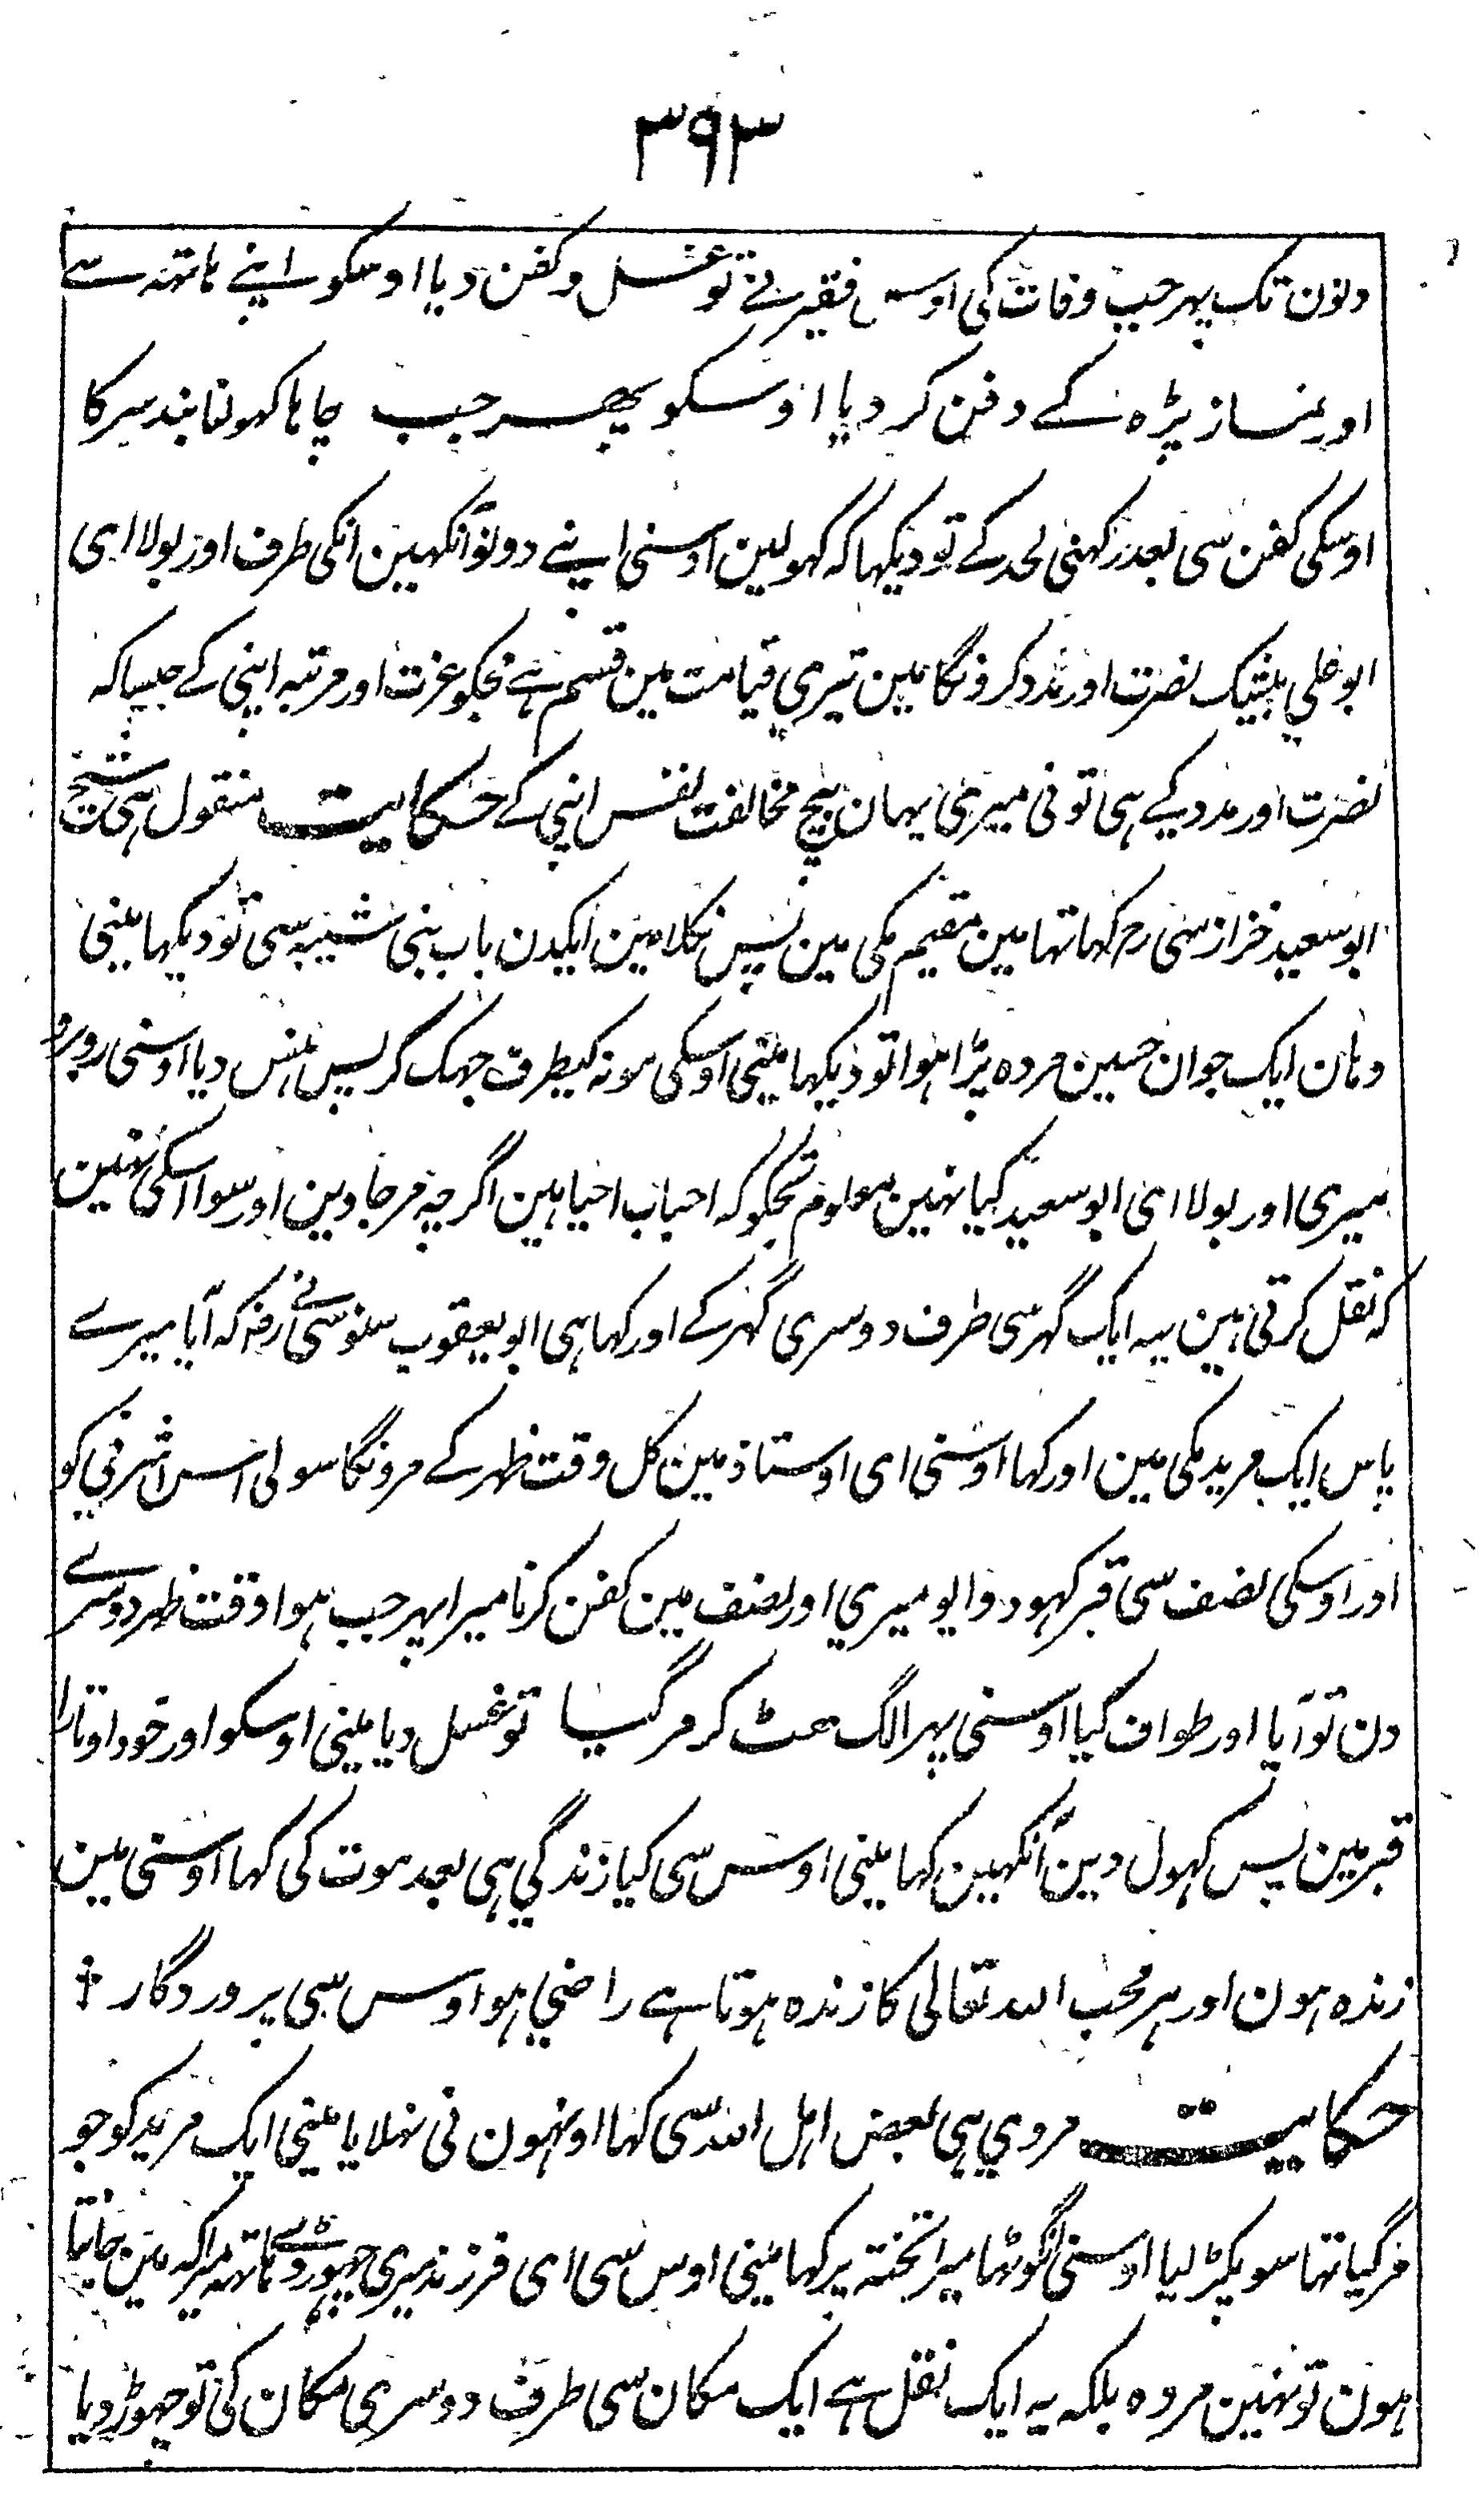 ٣٩٣
دنون تک پہر جب وفات کی اوس فقیر نے تو غسل و کفن دیا اوسکو اپنے ہاتہہ سے
اور نماز پڑہ کے دفن کر دیا اوسکو پھر جب چاہا کہولنا بند سر کا
اوسکی کفن سی بعد رکہنی لحد کے تو دیکہا کہ کہولین اوسنی اپنے دونو آنکہین انکی طرف اور بولا ای
ابو علي بیشک نصرت اور مدد کرونگا مین تیری قیامت مین قسم ہے مجکو عزت اور مرتبہ اپنی کے جیسا کہ
نصرت اور مدد کے ہی تو نی میری یہان بیچ مخالفت نفس اپنی کے حکایت منقول ہی شیخ
ابو سعید خزاز سی رح کہا تہا مین مقیم مکی مین پس نکلا مین ایکدن باب بنی شیبہ سی تو دیکہا مینی
وہان ایک جوان حسین مردہ پڑا ہوا تو دیکہا مینی اوسکی مونہ کیطرف جہک کر پس ہنس دیا اوسنی روبرو
میری اور بولا ای ابو سعید کیا نہین معلوم تجکو کہ احباب احیا ہین اگرچہ مر جاوین اور سوا اسکی نہین
کہ نقل کرتی ہین یہ ایک گہر سی طرف دوسری گہر کے اور کہا ہی ابو یعقوب سنوسی نے رض کہ آیا میرے
پاس ایک مرید مکی مین اور کہا اوسنی ای اوستاذ مین کل وقت ظہر کے مرونگا سو لی اس اشرفي کو
اور اوسکی نصف سی قبر کہودوائیو میري اور نصف مین کفن کرنا میرا پہر جب ہوا وقت ظہر دوسرے
دن تو آیا اور طواف کیا اوسنی پہر الگ ہٹ کر مر گیا تو غسل دیا مینی اوسکو اور خود اوتارا
قبر مین پس کہول دین آنکہین کہا مینی اوس سی کیا زندگي ہی بعد موت کی کہا اوسنی مین
زندہ ہون اور ہر محب اللہ تعالی کا زندہ ہوتا ہے راضي ہو اوس سی پروردگار ؞
حکایت مروي ہی بعض اہل اللہ سی کہا اونہون نی نہلایا مینی ایک مرید کو جو
مر گیا تہا سو پکڑ لیا اوسنی انگوٹہا میرا تختہ پر کہا مینی اوس سی ای فرزند میری چہوڑ دے ہاتہہ میرا کہ مین جانتا
ہون تو نہین مردہ بلکہ یہ ایک نقل ہے ایک مکان سی طرف دوسری مکان کی تو چہوڑ دیا